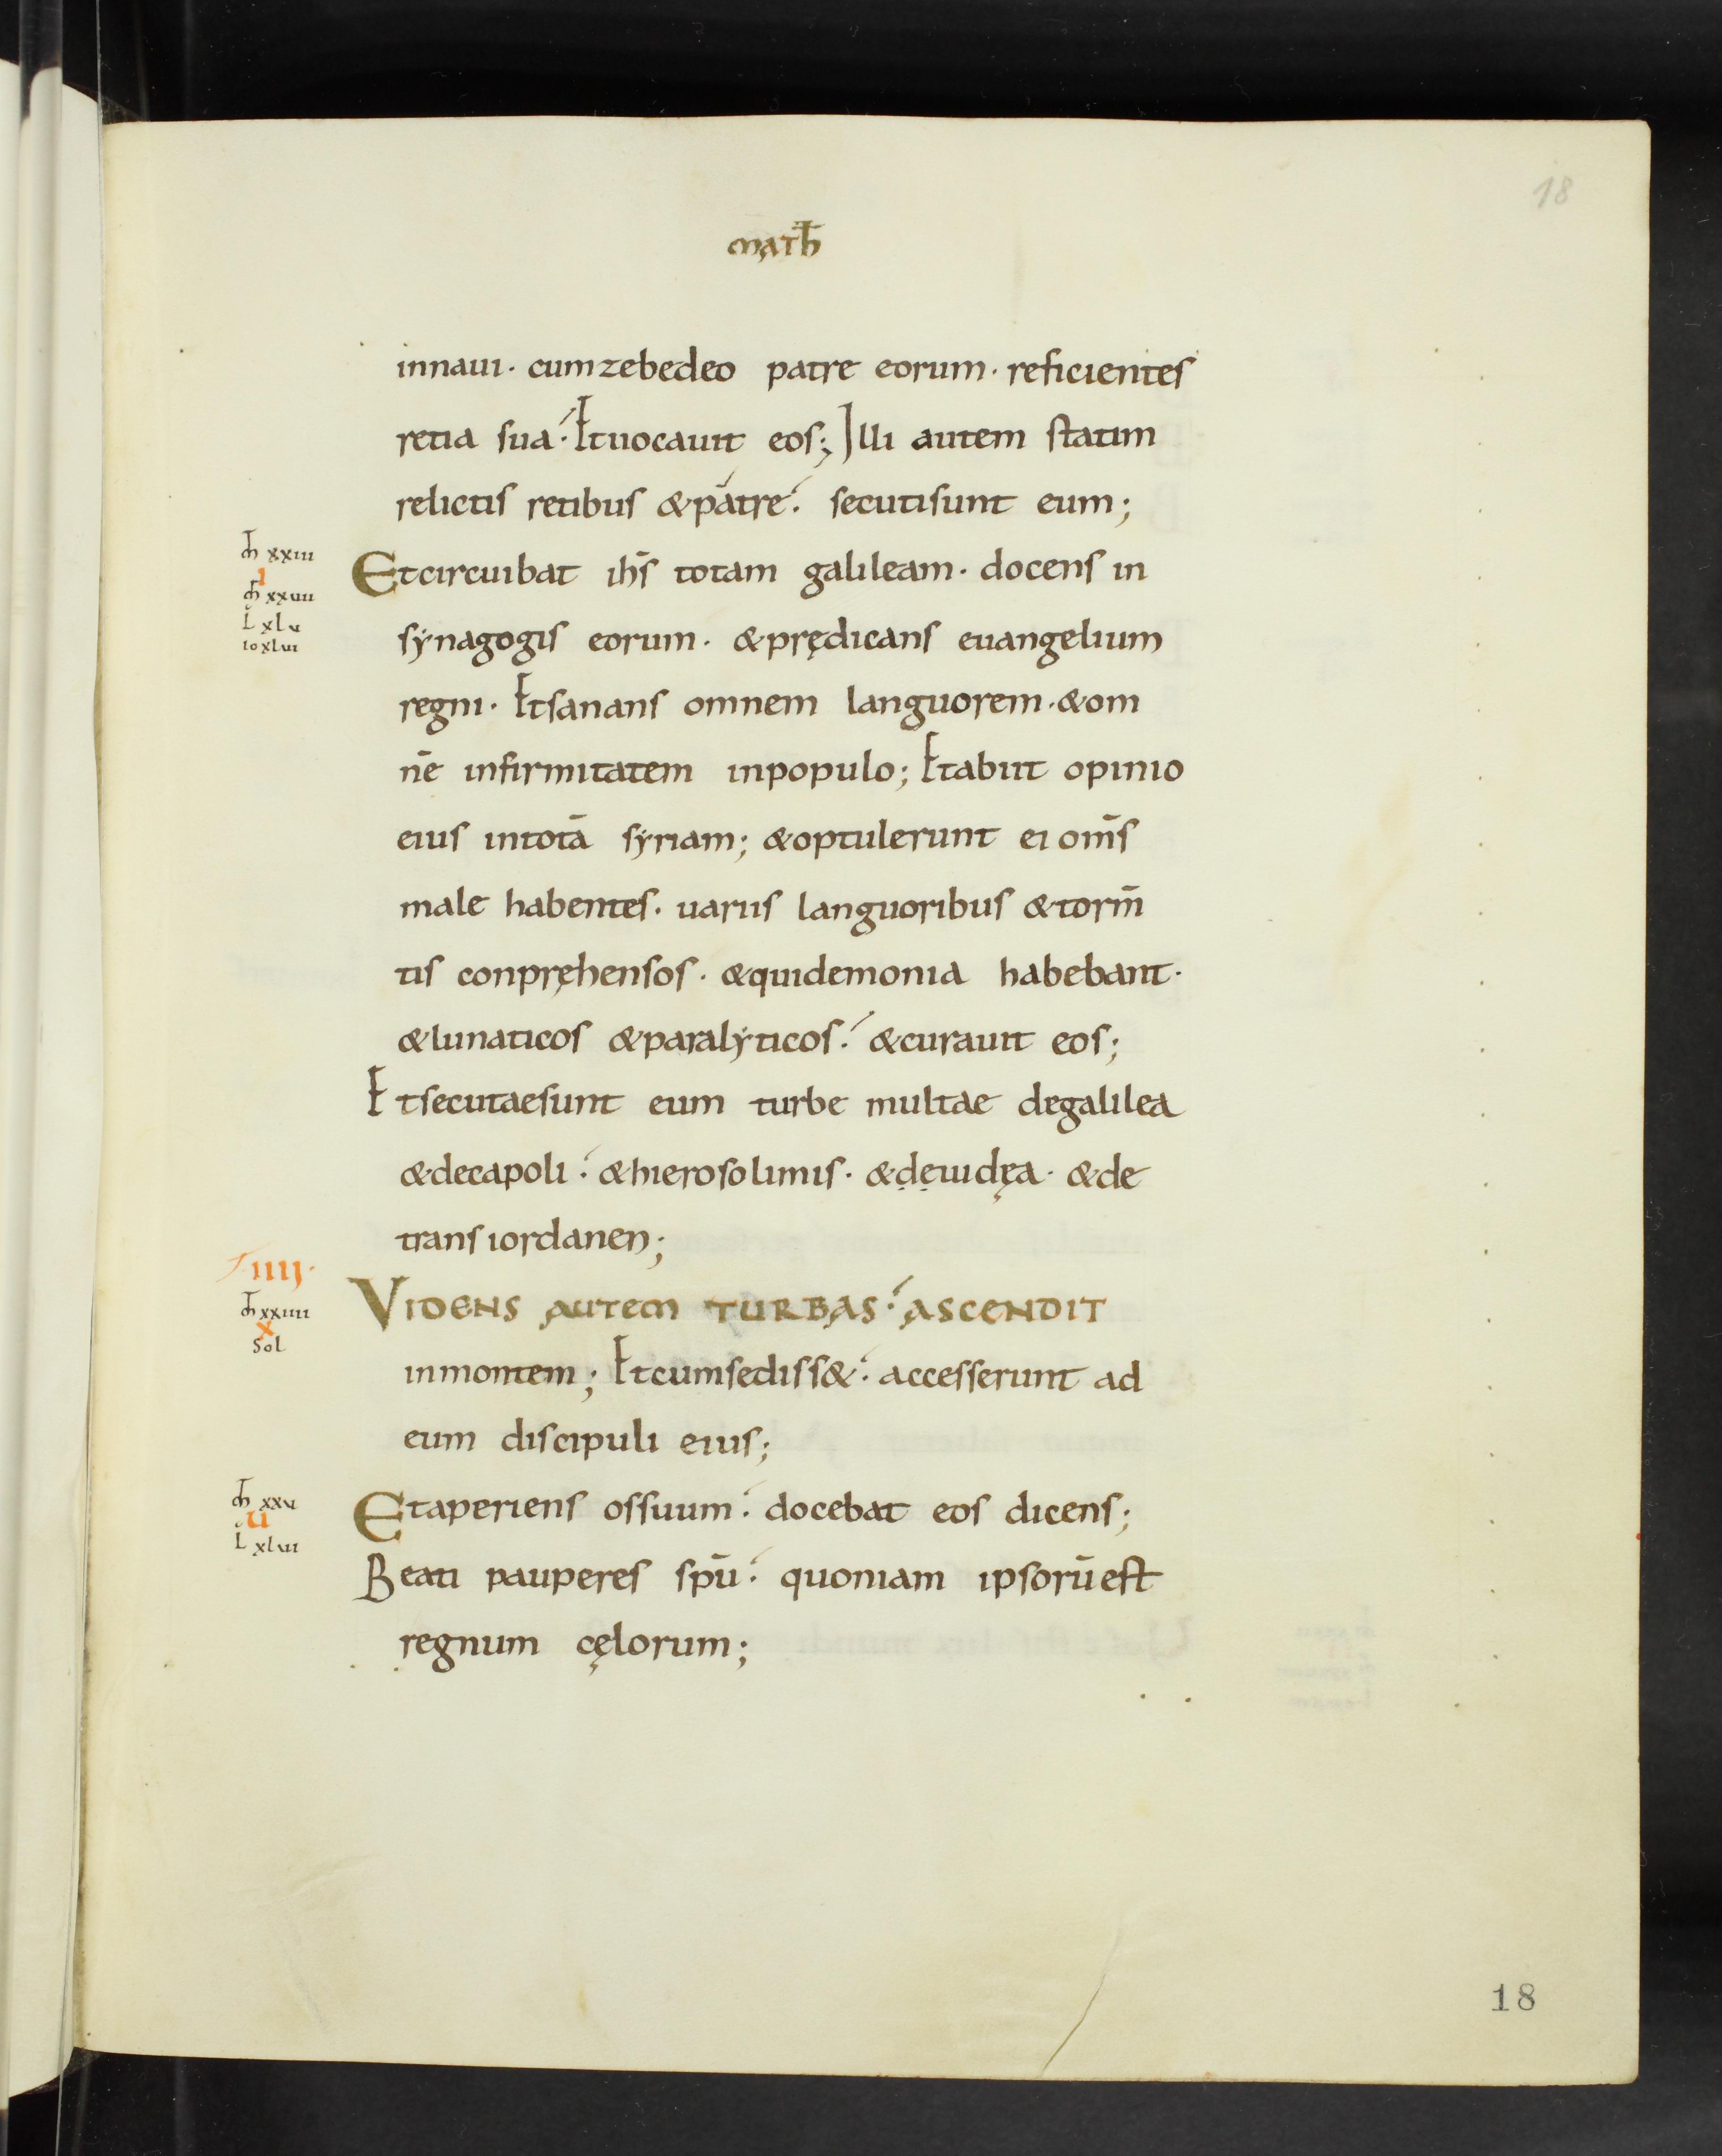 18
math̄
innaui· cumzebedeo patre eorum· reficientes
retia sua·́ Etuocauit eos; Illi autem statim
relictis retibus &patre·́ secutisunt eum;
m̄ xxiii
i
m̄ xxuii
L xlu
io xlui
Etcircuibat ih̄s totam galileam· docens in
sẏnagogis eorum· &prędicans euangelium
regni· Etsanans omnem languorem· &om
nē infirmitatem inpopulo; Etabiit opinio
eius intotā sẏriam; &optulerunt ei om̄s
male habentes· uariis languoribus &torm̄
tis conpręhensos· &quidemonia habebant·
&lunaticos &paralẏticos·́ &curauit eos;
Etsecutaesunt eum turbe multae degalilea
&decapoli·́ &hierosolimis· &ḍẹiudęa· &de
trans iordanen;
iiii·
m̄ xxiiii
x
sol
VIDENS AUTEM TURBAS·́ ASCENDIT
inmontem; Etcumsediss&·́ accesserunt ad
eum discipuli eius;
m̄ xxu
u
L xlui
Etaperiens ossuum·́ docebat eos dicens;
Beati pauperes sp̄u·́ quoniam ipsorūest
regnum cęlorum;
18